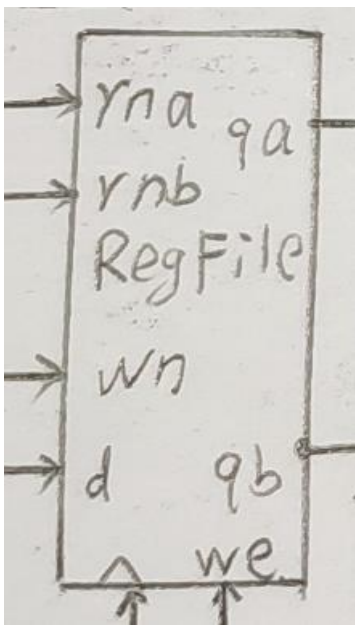 rna
qa
rnb
RegFile
wn
d
qb
we